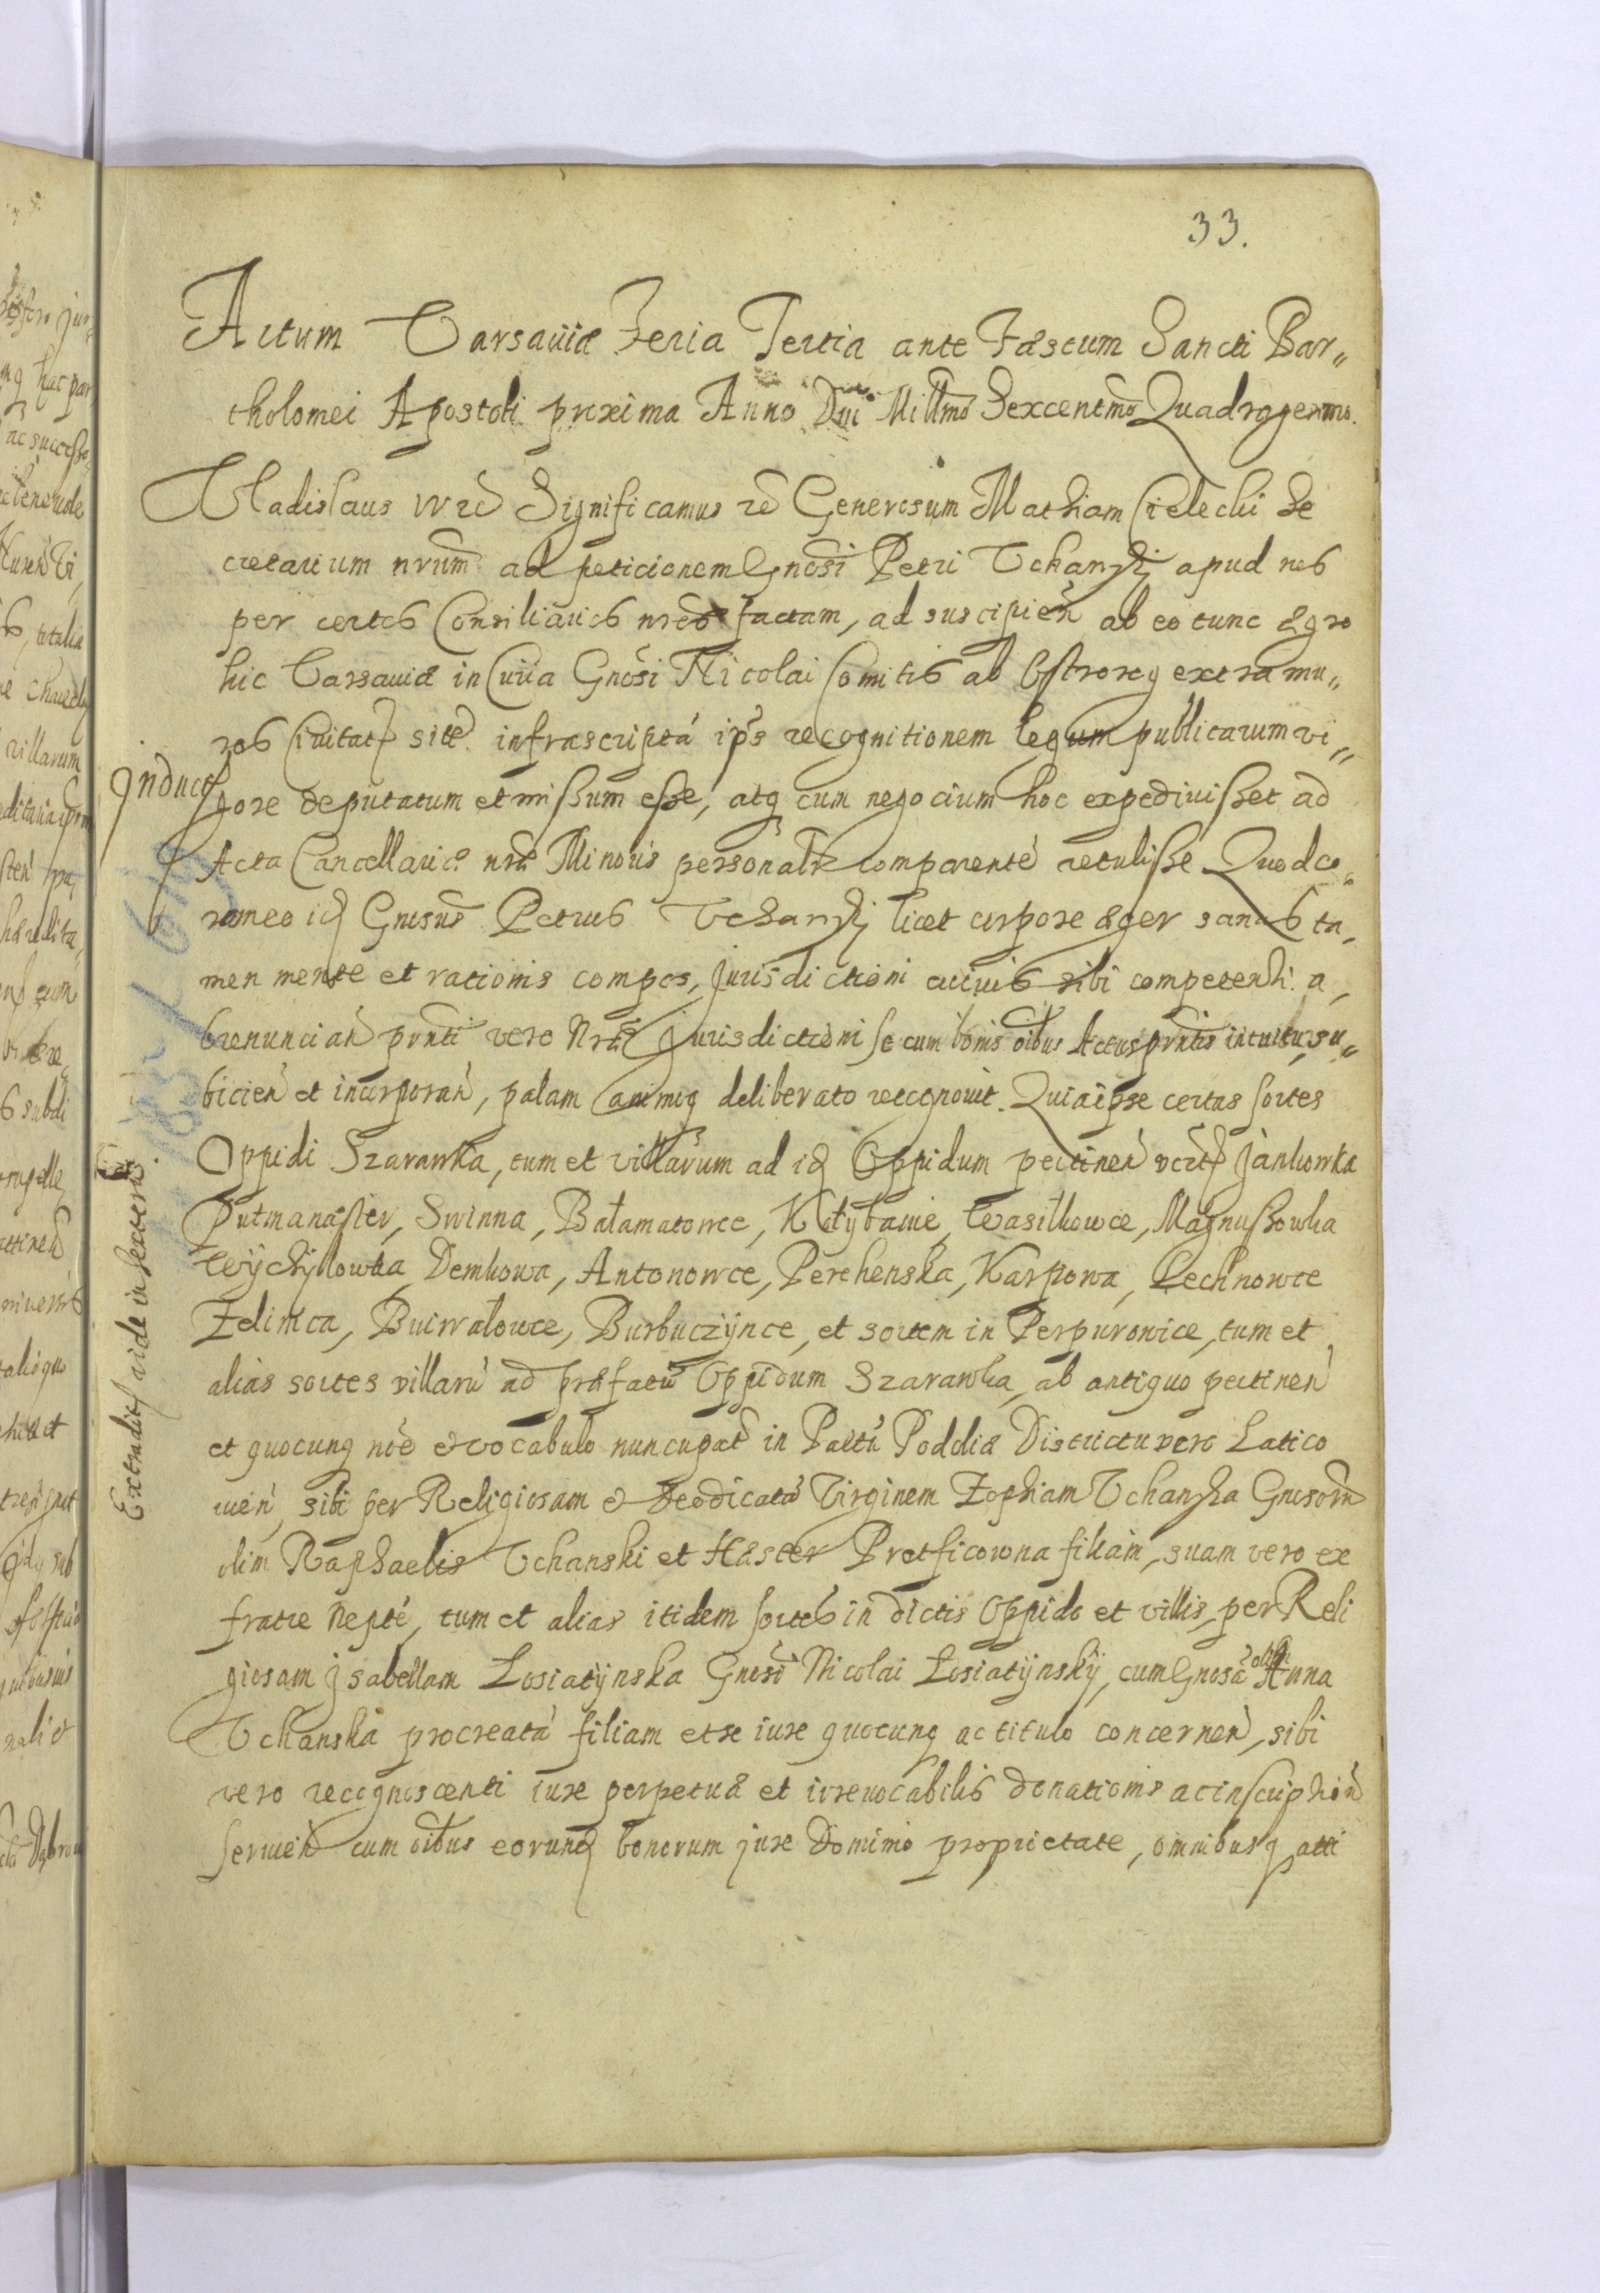 33.
Actum Varsaviæ Feria Tertia ante Fæstum Sancti Bar„
tholomei Apostoli proxima Anno Dni Millmo Sexcentmo Quadragesimo.
Vladislaus Significamus Generosum Mathiam Cielecki Se
cretarium nrum ad peticionem Gnosi Petri Uchansky apud nos
per certos Consiliarios nros factam, ad suscipien ab eo tunc ægro
hic Varsaviæ in Curia Gnosi Nicolai Comitis ab Ostrorog extra mu„
ros Civitat sitæ infrascriptā recognitionem legum publicarum vi„
gore deputatum et missum esse, atq cum negocium hoc expedivisset ad
Acta Cancellariæ nræ Minoris personalr comparente retulisse Quod co„
ram eo id Gnosus Petrus Uchansky licet corpore æger sanus ta„
men mente et rationis compos, Jurisdictioni cuivis sibi competenti a„
brenuncian prnti vero Nræ Jurisdictioni se cum bonis oibus Actus prntis intuitu, su„
bicien et incorporan, palam animoq deliberato recognovit. Quia ipse certas sortes
Oppidi Szarawka, tum et villarum ad id Oppidum pertinen vert Jankowka
Putmanaster, Swinna, Bałamatowce, Wasilkowce, Magnuszowka
Demkowa, Antonowce, Perehenska, Karpowa, Lechnowce
Zelinica, Burbuczÿnce, et sortem in Perpuronice, tum et
alias sortes villarū ad præfatū Oppidum Szarawka, ab antiquo pertinen
et quocunq noe & vocabulo nuncupat in Paltū Podoliæ Districtu vero Latico
vien, sibi per Religiosam & Deodicatā Virginem Zophiam Uchanska Gnosorm
olim Raphaelis Uchanski et Hæster Pretficowna filiam, suam vero ex
fratre nepte, tum et alias itidem sortes in dictis Oppido et villis, per Reli
giosam Jsabellam Łosiatÿnska Gnosi Nicolai Łosiatÿnskÿ, cum Gnosa olim Anna
Uchanska procreatā filiam et se iure quocunq ac titulo concernen, sibi
vero recognoscenti iure perpetuæ et irrevocabilis donationis ac inscription
servien cum oibus eorund bonorum jure Dominio proprietate, omnibusq atti
Induct
Extradit vide in sexterno.